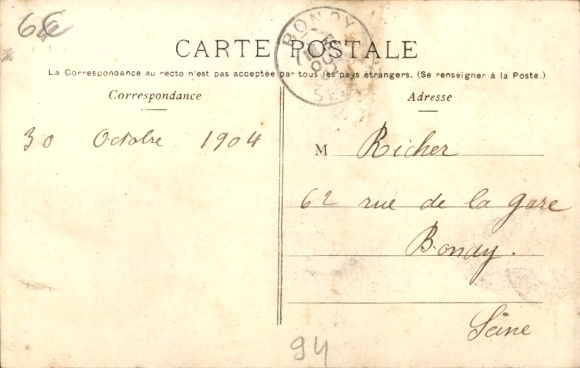 CARTE POSTALE
BONDY
La Correspondance au recto n'est pas acceptée par tous les pays étrangers. (Se renseigner à la Poste.)
Correspondance
Adresse
30 Octobre 1904
M Richer
62 rue de la gare
Bondy.
Seine
94